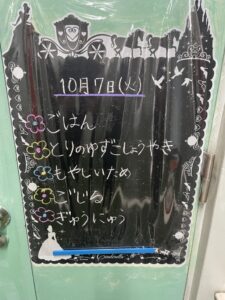 10月7日(火)
ごはん
とりのゆずこしょうやき
もやしいため
ごじる
ぎゅうにゅう
Cinderella